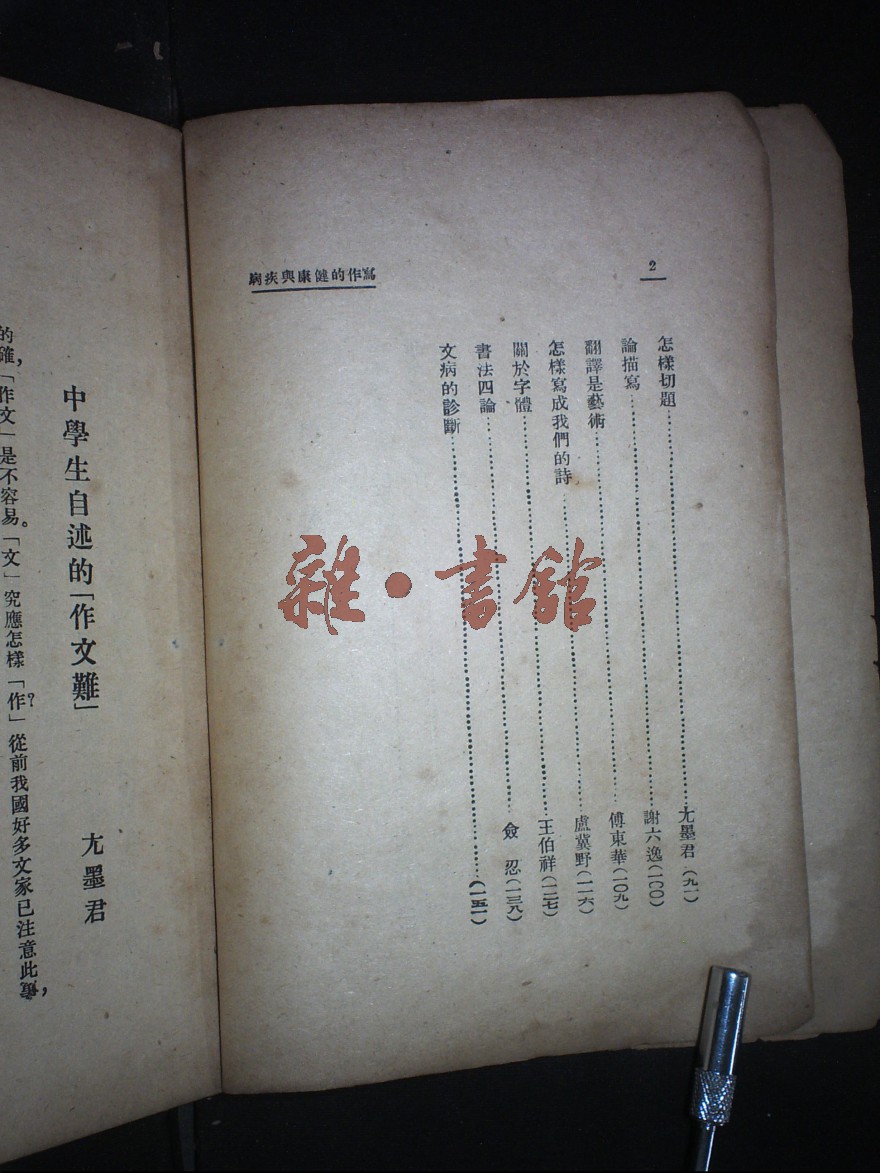 2
寫作的健康與疾病
怎樣切題……尤墨君(九一)
論描寫……謝六逸(一〇〇)
翻譯是藝術……傅東華(一〇九)
怎樣寫成我們的詩……盧冀野(一一六)
關於字體……王伯祥(一二七)
書法四論……僉 忍(一三八)
文病的診斷……(一五一)
中學生自述的「作文難」
尤墨君
的確,「作文」是不容易。「文」究應怎樣「作」?從前我國好多文家已注意此,
雜·書館